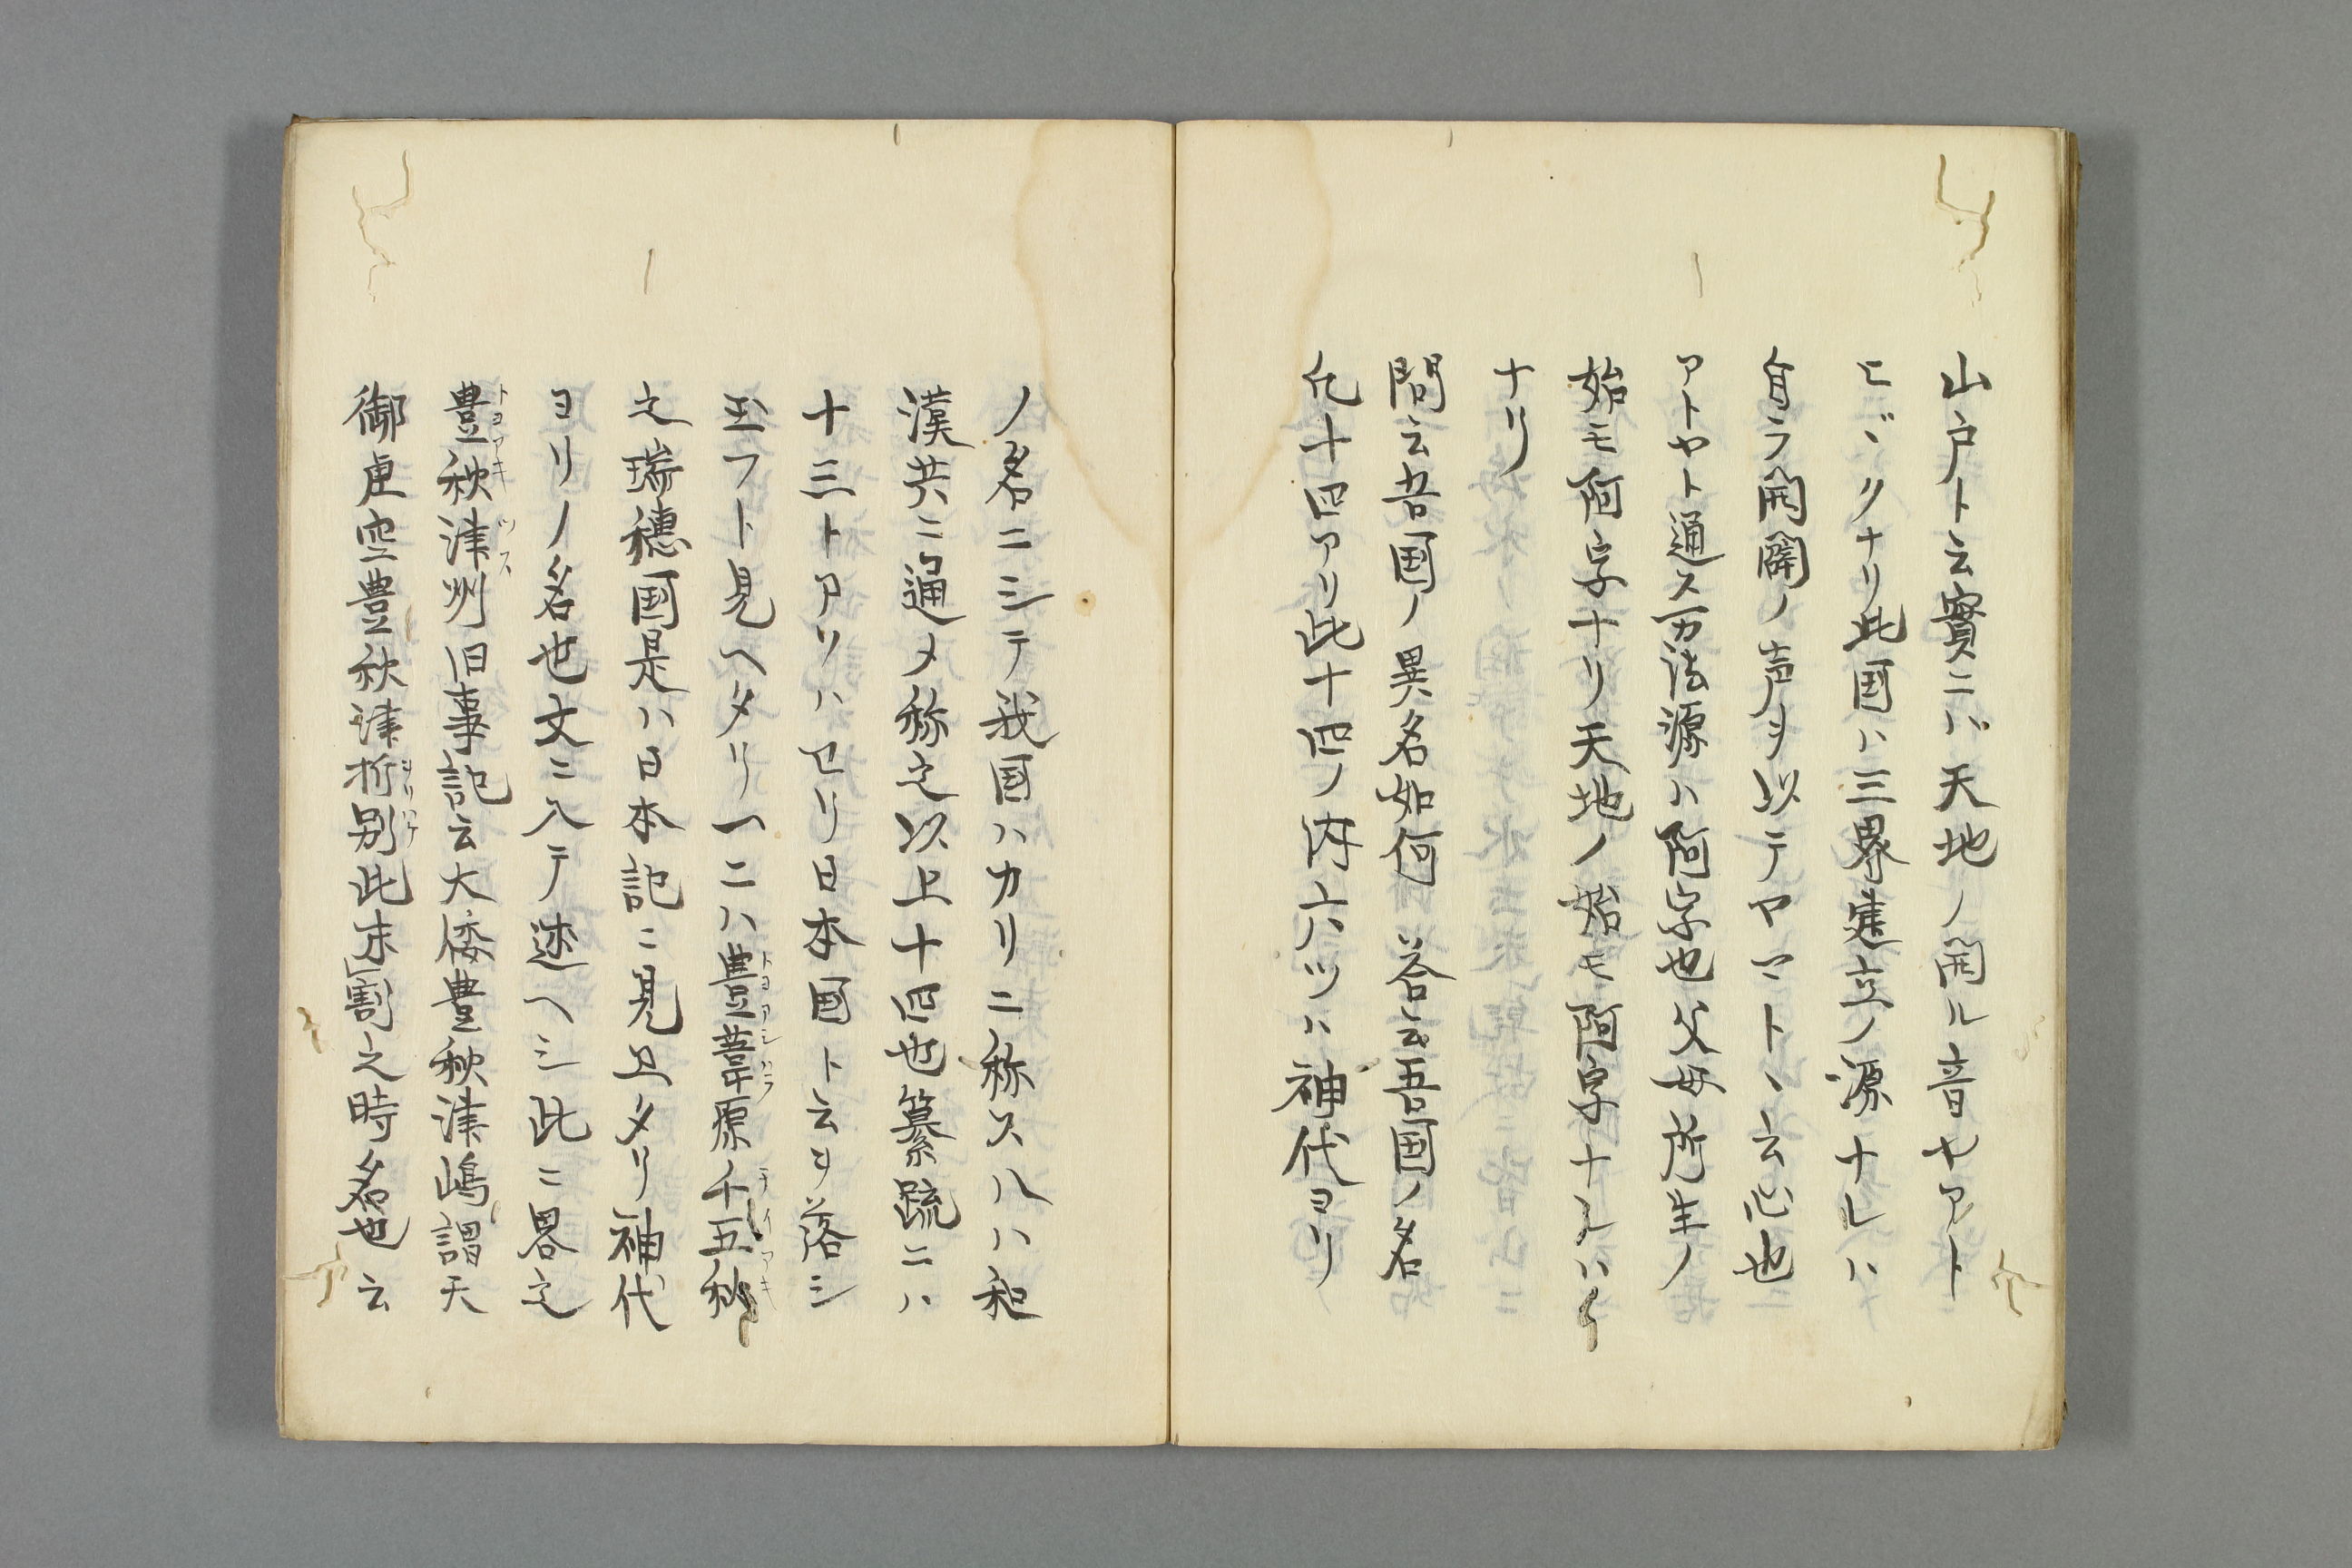 山戸ト云實ニハ天地ノ開ル音ヤアト
ヒヾクナリ此国ハ三界建立ノ源ナレハ
自ラ開闢ノ声ヲ以テヤマトヽ云ナリ也
アトヤト通ス万法源ハ阿字也父母出生ノ
始モ阿字ナリ天地ノ始モ阿字ナレハ
ナリ
問云吾国ノ異名如何 答云吾国ノ名
凡十四アリ此十四ノ中六ツハ神代ヨリ
ノ名ニシテ我国ハカリニ称ス八ハ和
漢共ニ通メ称之以上十四也纂疏ニハ
十三トアソハセリ日本国ト云ヲ落シ
玉フト見ヘタリ一ニハ豊葦原千五秋
之瑞穂国是ハ日本記ニ見ヘタリ神代
ヨリノ名也文ニ入テ述ヘシ此ニ畧之
豊秋津洲旧事記云大倭豊秋津嶋謂天
御虚空豊秋津根別此未割之時名也云